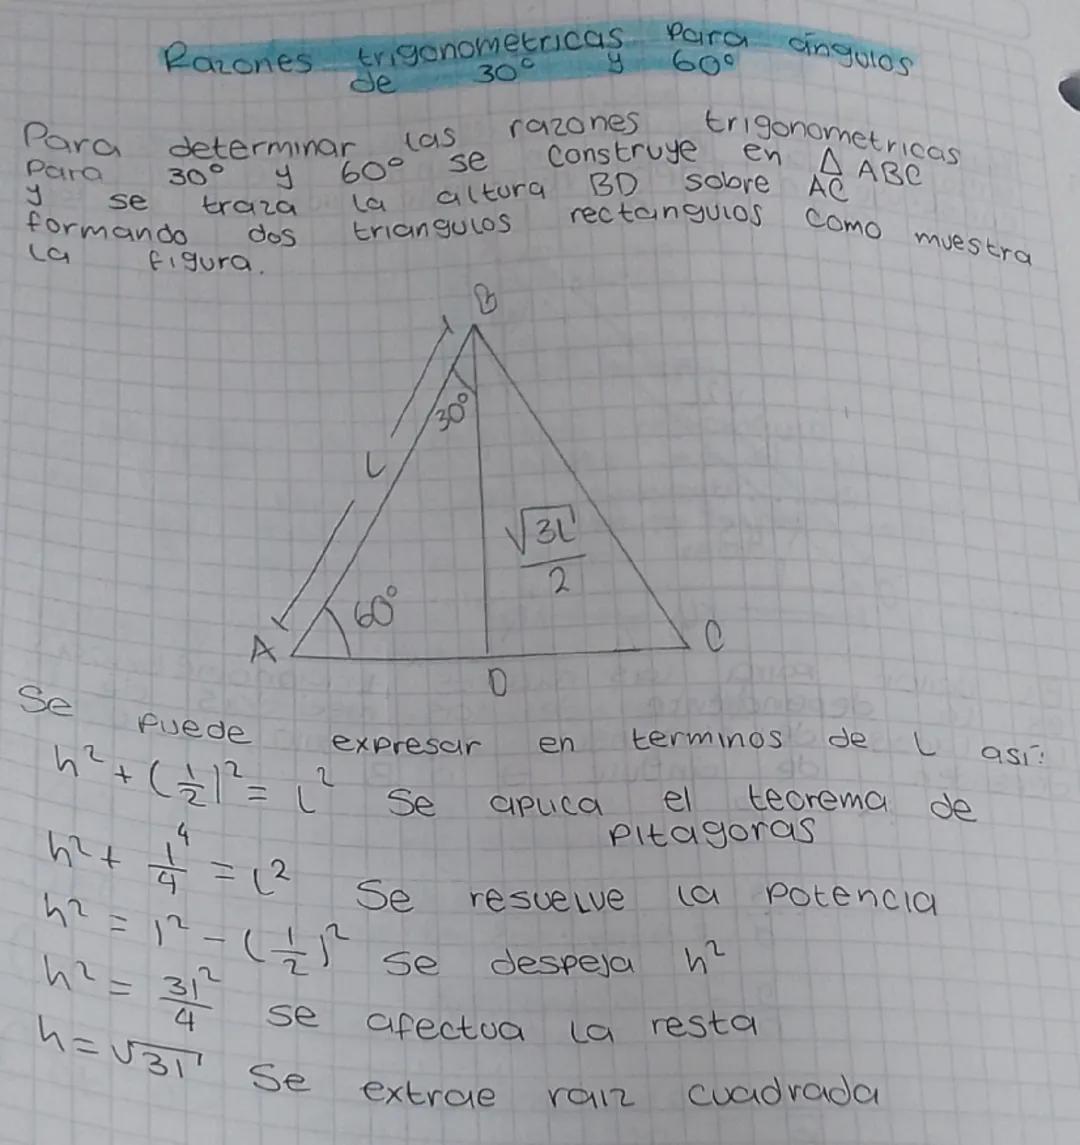 Razones trigonometricas Para ángulos
de 30° y 60°
Para determinar las razones trigonometricas
Para 30° y 60° se construye en Δ ABC
y se traza la altura BD sobre AC
formando dos triangulos rectangulos como muestra
la figura.
B
30°
L
√3L
2
60°
A
C
D
Se Puede expresar en terminos de L así:
h² + (1/2)² = L² Se aplica el teorema de
Pitagoras
h² + 1⁴/4 = L² Se resuelve la Potencia
h² = 1² - (1/2)² se despeja h²
h² = 31²/4 se afectua la resta
h = √31 Se extrae raiz cuadrada